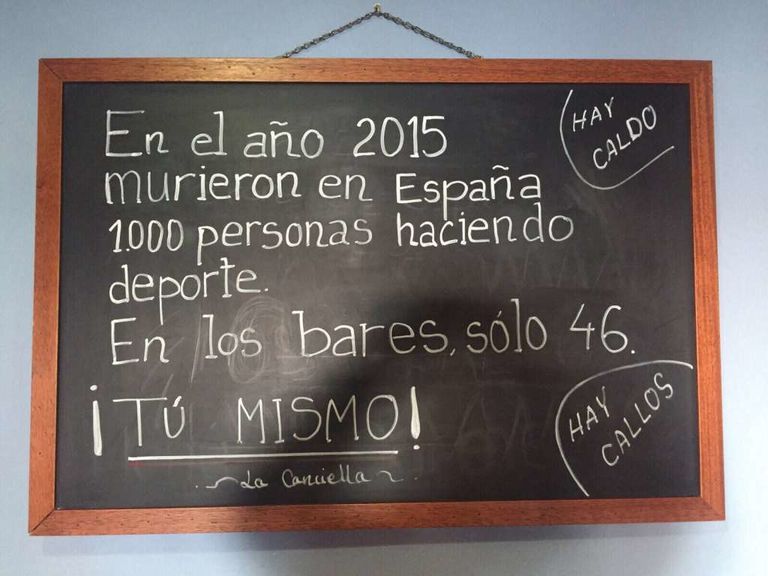 En el año 2015
murieron en España
1.000 personas haciendo
deporte.
En los bares, sólo 46.
¡TÚ MISMO!
HAY
CALDO
HAY
CALLOS
La